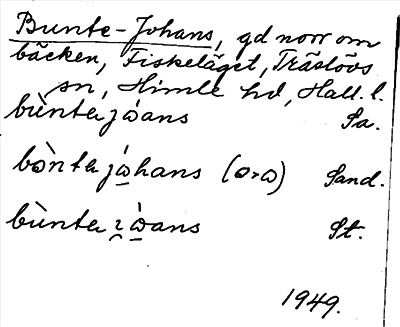 Bunte-Johans, gd norr om
bäcken, Fiskeläget, Träslövs
sn, Himle hd, Hall. l.
bùnta jòans Sa.
bònta jòhans (o>ɷ) Sand.
bùnta ɿòans St.
1949.